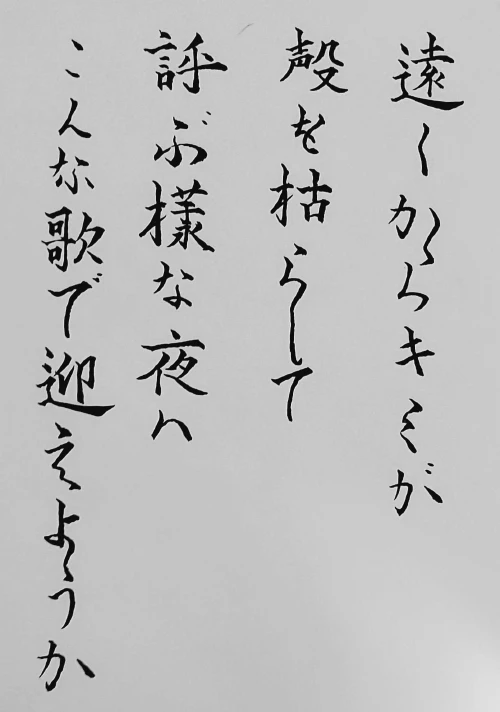 遠くからキミが
殸を枯らして
評ぶ様な夜ハ
こんな歌で迎えようか